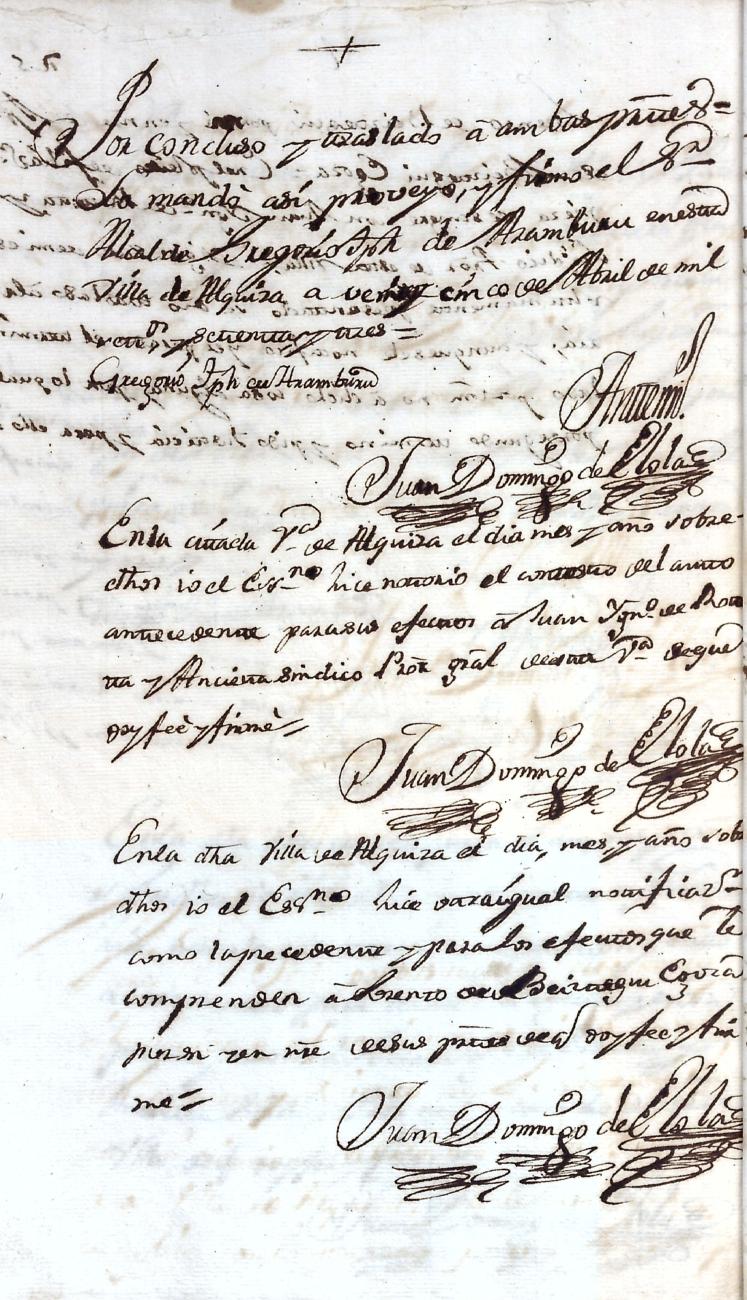 Por concluso y traslado a ambas partes
lo mandó así proveyo, y firmo el Sr
Alcalde Gregorio Jph de Aramburu en esta
Villa de Alquiza a veinte y cinco de Abril de mil
setts y setenta y tres =
Gregorio Jph de Aramburu
Antemi
Juan Domingo de Elola
En la citada Va de Alquiza el dia mes y año sobre-
dhos io el Essno hice notorio el contexto del auto
antecedente para sus efectos a Juan Ygno de
y Ancieta sindico Pror gral de esta Va de que
doy feè y firmè =
Juan Domingo de Elola
En la dha Villa de Alquiza el dia, mes, y año sobre
dhos io el Essno hice otra igual notificazn
como la precedente y para los efectos que le
comprenden à Lorenzo de
por si y en nre de sus partes de q doy fee y fir
me =
Juan Domingo de Elola